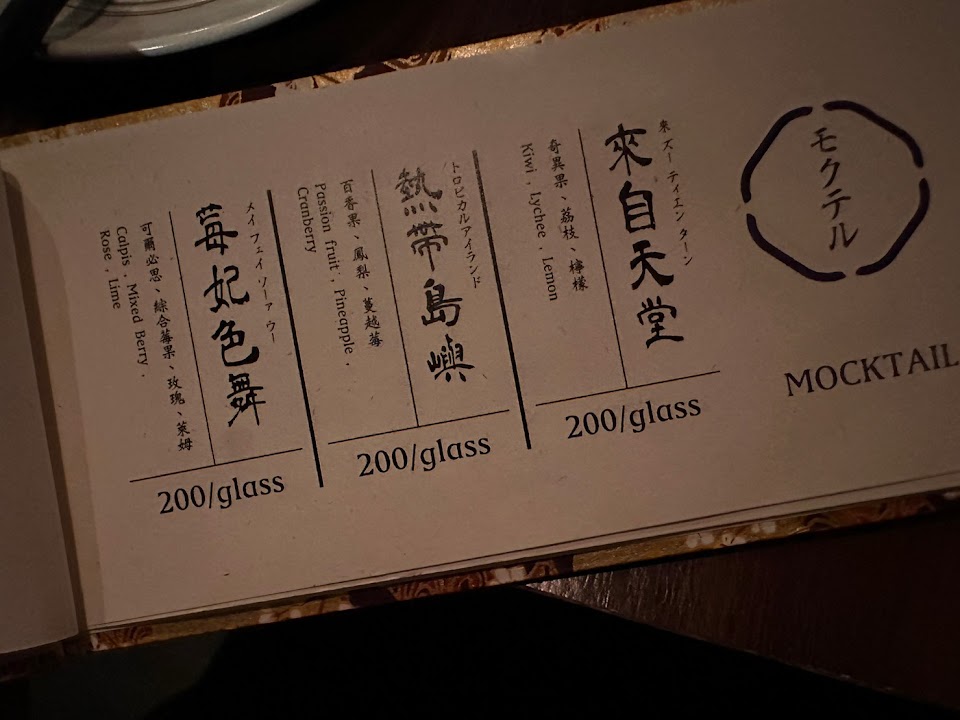 モクテル
MOCKTAIL
來自天堂
来 ズーティエン ターン
奇異果、荔枝、檸檬
Kiwi．Lychee．Lemon
200/glass
熱帶島嶼
トロピカルアイランド
百香果、鳳梨、蔓越莓
Passion fruit．Pineapple．
Cranberry
200/glass
莓妃色舞
メイ フェイ ソーァ ウー
可爾必思、綜合莓果、玫瑰、萊姆
Calpis．Mixed Berry．
Rose．Lime
200/glass